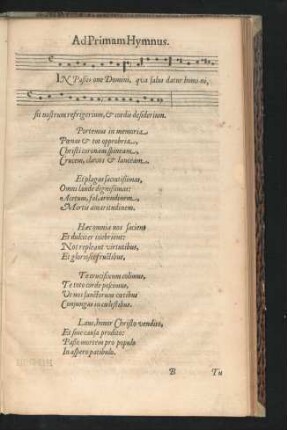 Ad Primam Hymnus.
IN Passione Domini, qua salus datur homini,
sit nostrum refrigerium, & cordis desiderium.
Portemus in memoria
Poenas & tot opprobria,
Christi coronam spineam,
Crucem, clavos & lanceam.
Et plagas sacratissimas,
Omni laude dignissimas:
Acetum, fel, arundinem,
Mortis amaritudinem.
Hæc omnia nos satient
Et dulciter inebrient:
Nos repleant virtutibus,
Et gloriosis fructibus.
Te crucifixum colimus,
Te toto corde poscimus,
Ut nos sanctorum coetibus
Conjungas in coelestibus.
Laus, honor Christo vendito,
Et sine causa prodito:
Passo mortem pro populo
In aspero patibulo.
B Tu